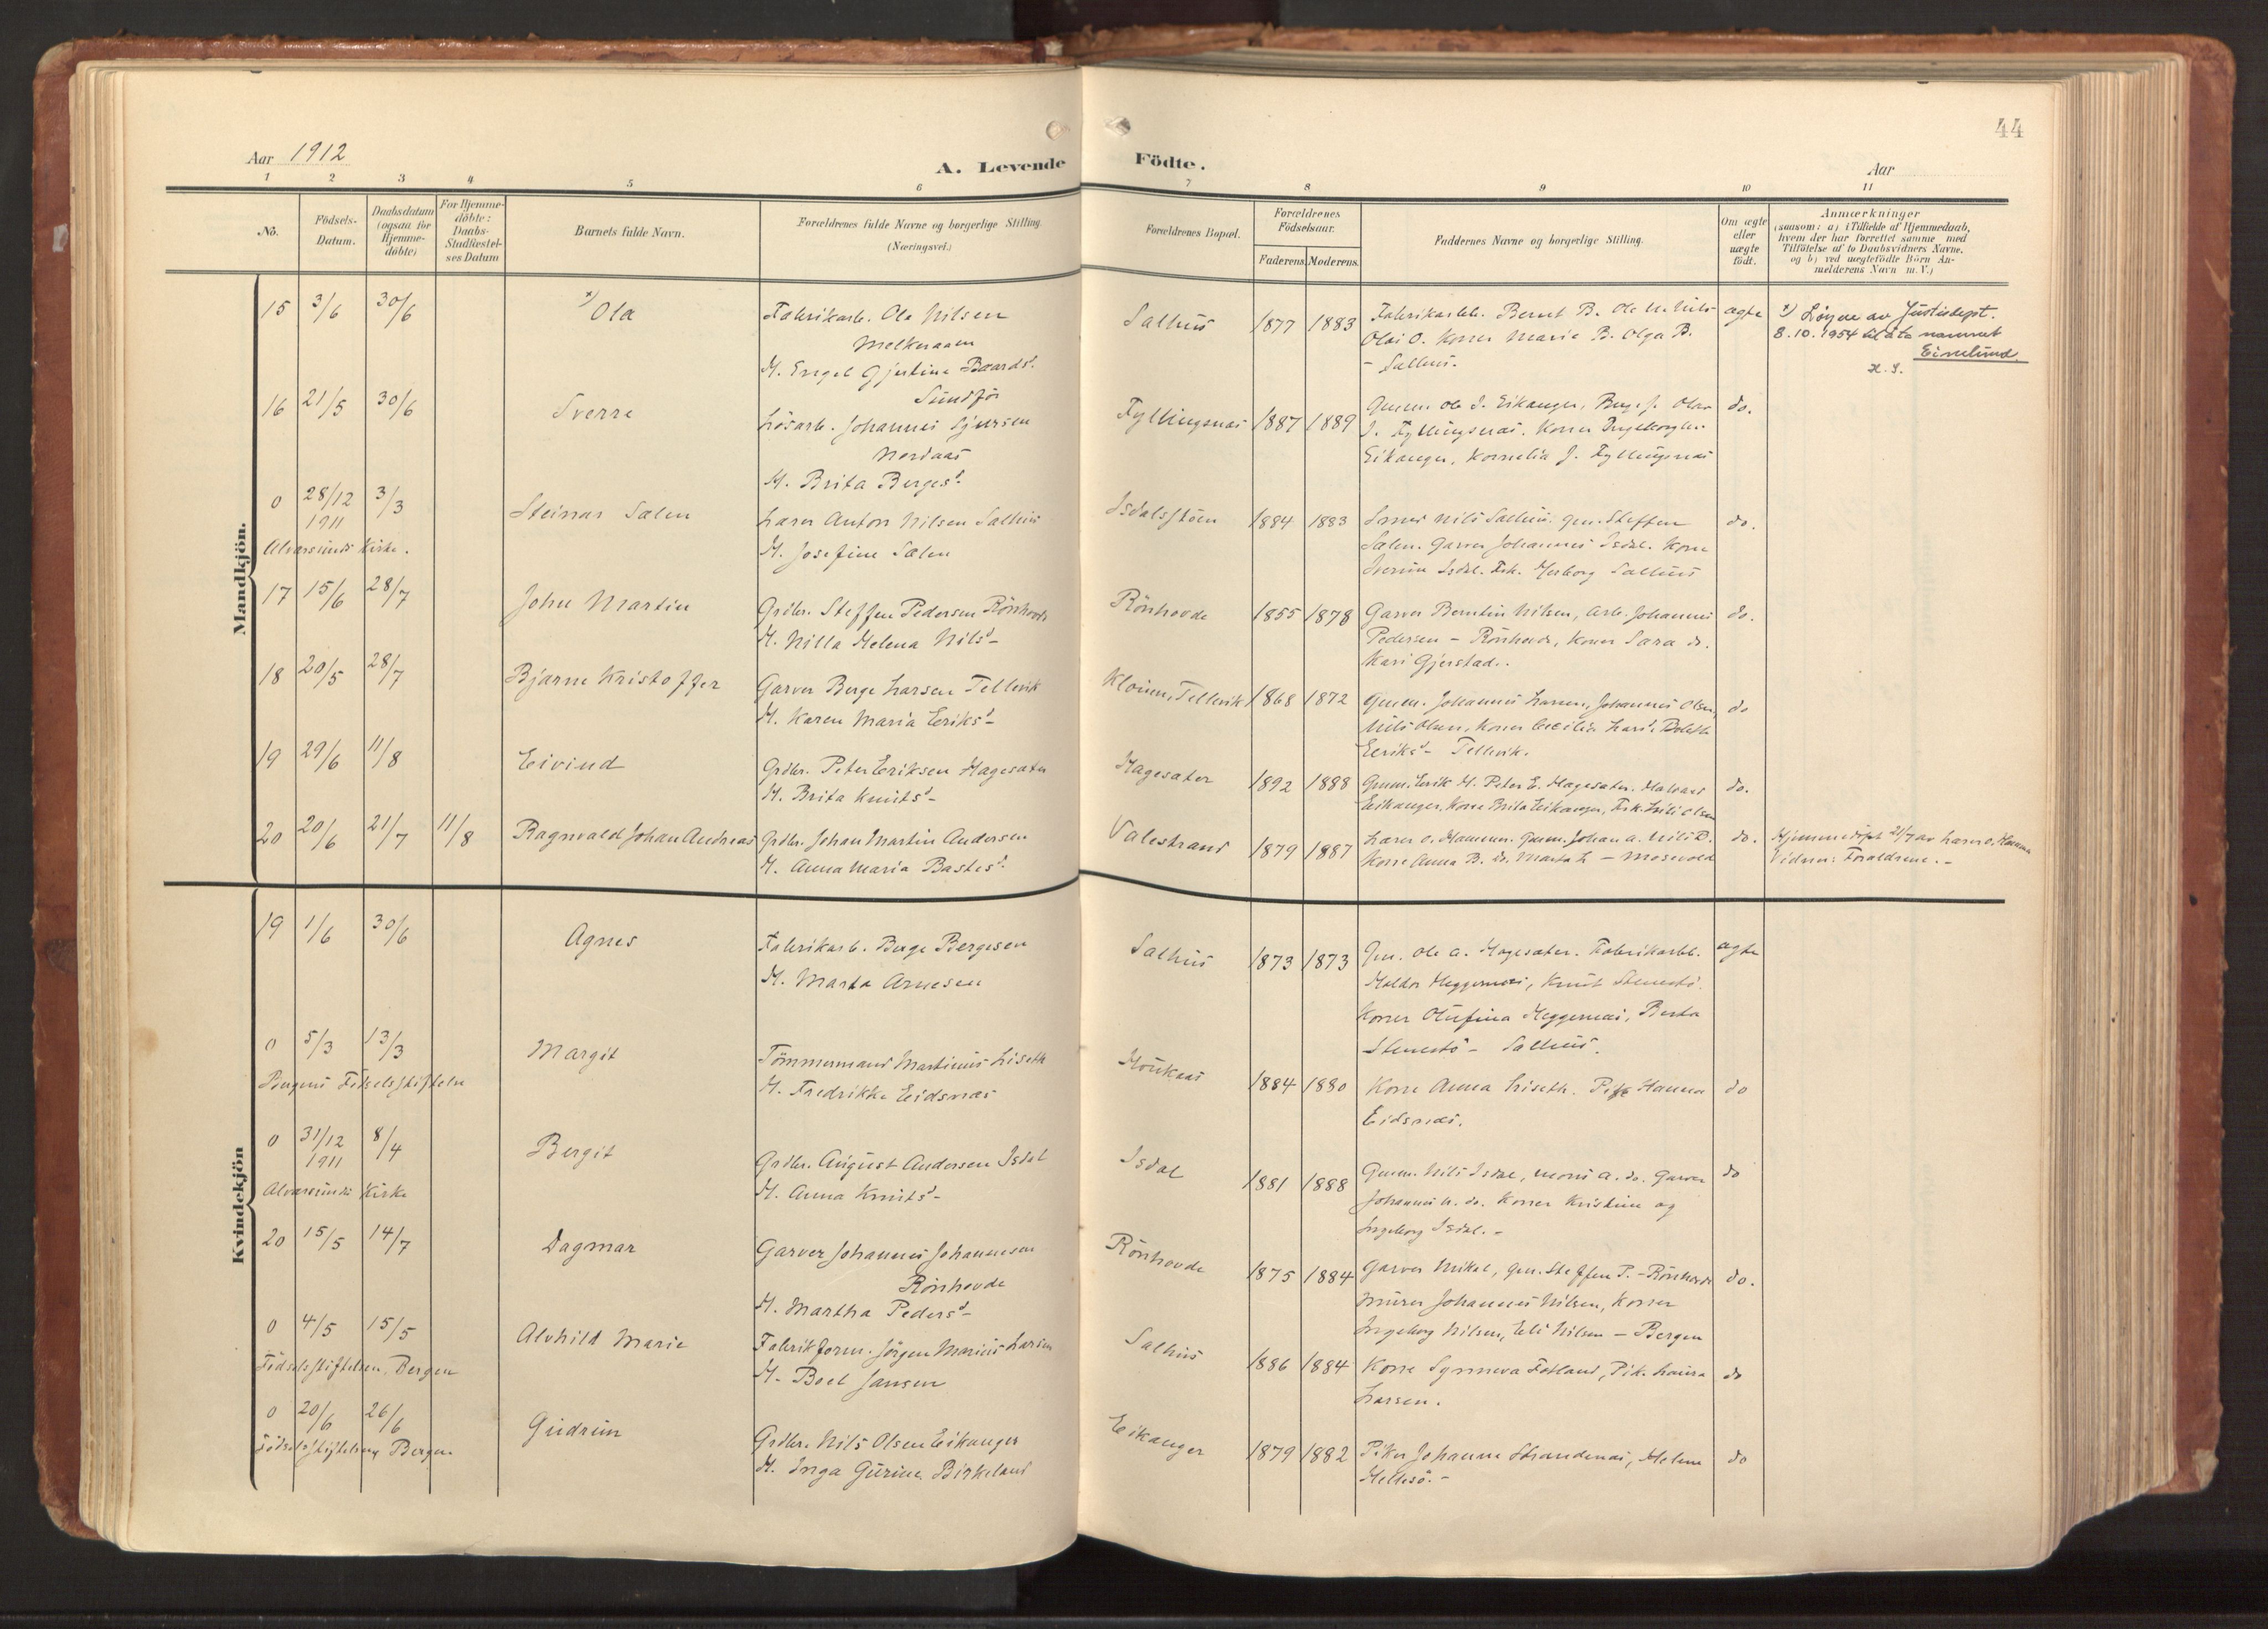 44
Aar 1912
A. Levende Födte.
Aar
1 2 3 4 5 6 7 8 9 10 11
No.
Födsels-
Datum.
Daabsdatum
(ogsaa for
Hjemme-
döbte)
For Hjemme-
döbte:
Daabs-
Stadfæstel-
ses Datum
Barnets fulde Navn.
Forældrenes fulde Navne og borgerlige Stilling.
(Næringsvei.)
Forældrenes Bopæl.
Forældrenes
Födselsaar.
Faderens. Moderens.
Faddernes Navne og borgerlige Stilling.
Om ægte
eller
uægte
födt.
Anmærkninger
(saasom: a) i Tilfælde af Hjemmedaab,
hvem der har forrettet samme med
Tilföielse af to Daabsvidners Navne,
og b) ved uægtefödte Börn An-
melderens Navn m. V.)
Mandkjön.
15 3/6 30/6 x) Ola
Fabrikarb. Ola Nilsen
Melkeraaen
H. Engel Gjertine Baards d.
Sundför
Salhus 1877 1883
Fabrikarbb. Bernt B. Ole N. Nils
Olai O. Koner Marie B. Olga B.
- Salhus.
ægte
x) Löyve av Justisdept.
8.10.1954 til å ta namnet
Eirelund.
H. S.
16 21/5 30/6 Sverre
Lösarb. Johannes Sjursen
Nordaas
H. Brita Berges d.
Fyllingsnæs 1887 1889
Gmm. Ole J. Eikanger, Olav
J. Fyllingsnæs. Koner Ingeborg
Eikanger, Kornelia J. Fyllingsnæs
do.
0 28/12 1911 3/3 Steinar Sælen
Lærer Anton Nilsen Salhus
H. Josefine Sælen
Isdalstöen 1884 1883
Smed Nils Salhus. Gm. Steffen
Sælen. Garver Johannes Isdal. Kone
Isdal. Frk. Herborg Salhus
do.
Alversunds Kirke.
17 15/6 28/7 John Martin
Grdbr. Steffen Pedersen Rönhovde
H. Nilla Helena Nils d-
Rönhovde 1855 1878
Garver Berntin Nilsen, Arb. Johannes
Pedersen - Rönhovde, Koner Sara do.
Kari Gjerstad.
do.
18 20/5 28/7 Bjarne Kristoffer
Garver Berge Larsen Tellevik
H. Karen Maria Eriks d-
Kloven, Tellevik 1868 1872
Gmm. Johannes Larsen, Johannes Olsen,
Nils Olsen, Koner Cecilia Lars d.
Eriks d- Tellevik.
do
19 29/6 11/8 Eivind
Grdbr. Peter Eriksen Hagesæter
H. Brita Knuts d-
Hagesæter 1892 1888
Gmm. Erik H. Peter E. Hagesæter.
Eikanger, Kone Brita Eikanger, Frk. Olsen
do.
20 20/6 21/7 11/8 Ragnvald Johan Andreas
Grdbr. Johan Martin Andersen
H. Anna Maria Bastes d.
Valestrand 1879 1887
Lærer O. Hammer. Gmm. Johan A. Nils B.
Kone Anna B. do. Marta L - Mosevold
do.
Hjemmedöpt 21/7 av lærer O. Hammer
Vidner: Forældrene. -
Kvindekjön
19 1/6 30/6 Agnes
Fabrikarb. Berge Bergesen
H. Marta Arnesen
Salhus 1873 1873
Gm. Ole A. Hagesæter. Fabrikarbb.
Haldor Heggernæs, Knut Stenestö.
Koner Olufina Heggernæs, Berta
Stenestö - Salhus.
ægte
0 5/3 13/3 Margit
Tömmermand Martinus Liseth
H. Fredrikke Eidsnæs
Houkaas 1884 1880
Kone Anna Liseth. Pike Hanna
Eidsnæs.
do
Bergens Födselsstiftelse
0 31/12 1911 8/4 Bergit
Grdbr. August Andersen Isdal
H. Anna Knuts d-
Isdal 1881 1888
Gmm. Nils Isdal, Mons A. do. Garver
Johannes A. do. Koner Kristine og
Ingeborg Isdal. -
do
Alversunds Kirke
20 15/5 14/7 Dagmar
Garver Johannes Johannesen
Rönhovde
H. Martha Peders d-
Rönhovde 1875 1884
Garver Mikal, Gm. Steffen P. - Rönhovde
Murer Johannes Nilsen, Koner
Ingeborg Nilsen, Eli Nilsen - Bergen
do.
0 4/5 15/5 Alvhild Marie
Fabrikform. Jörgen Marius Larsen
H. Boel Jansen
Salhus 1886 1884
Kone Synneva Fotland, Pik. Laura
Larsen.
do
Födselsstiftelsen, Bergen
0 20/6 26/6 Gudrun
Grdbr. Nils Olsen Eikanger
H. Inga Gurine Birkeland
Eikanger 1879 1882
Piker Johanne Strandenæs, Helene
Hellesö. -
do
Födselsstiftelsen, Bergen